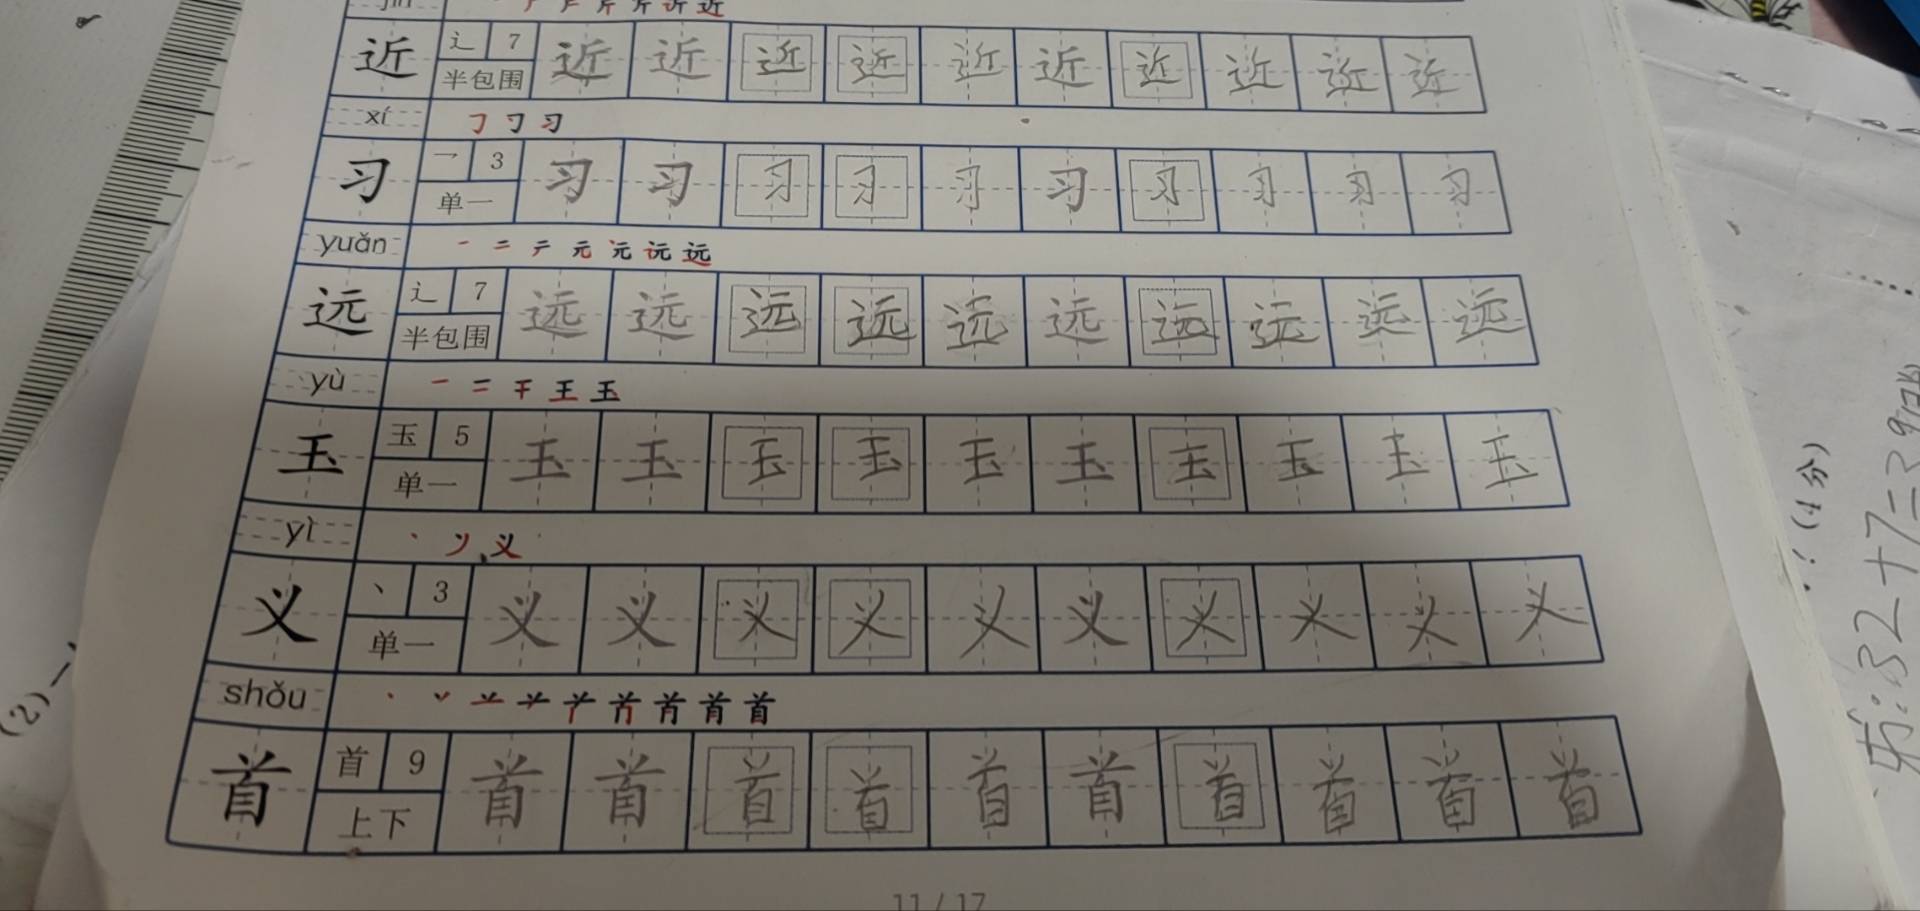 jìn
近 辶 7 近 近 近 近 近 近 近 近 近 近
半包围
xí
习 乛 3 习 习 习 习 习 习 习 习 习 习
单一
yuǎn 一 二 テ 元 远
远 辶 7 远 远 远 远 远 远 远 远 远 远
半包围
yù 一 二 王 玉
玉 玉 5 玉 玉 玉 玉 玉 玉 玉 玉 玉 玉
单一
yì 丶 义
义 丶 3 义 义 义 义 义 义 义 义 义 义
单一
shǒu 首
首 首 9 首 首 首 首 首 首 首 首 首 首
上下
11 / 17
(4分)
(2)
32+7=39